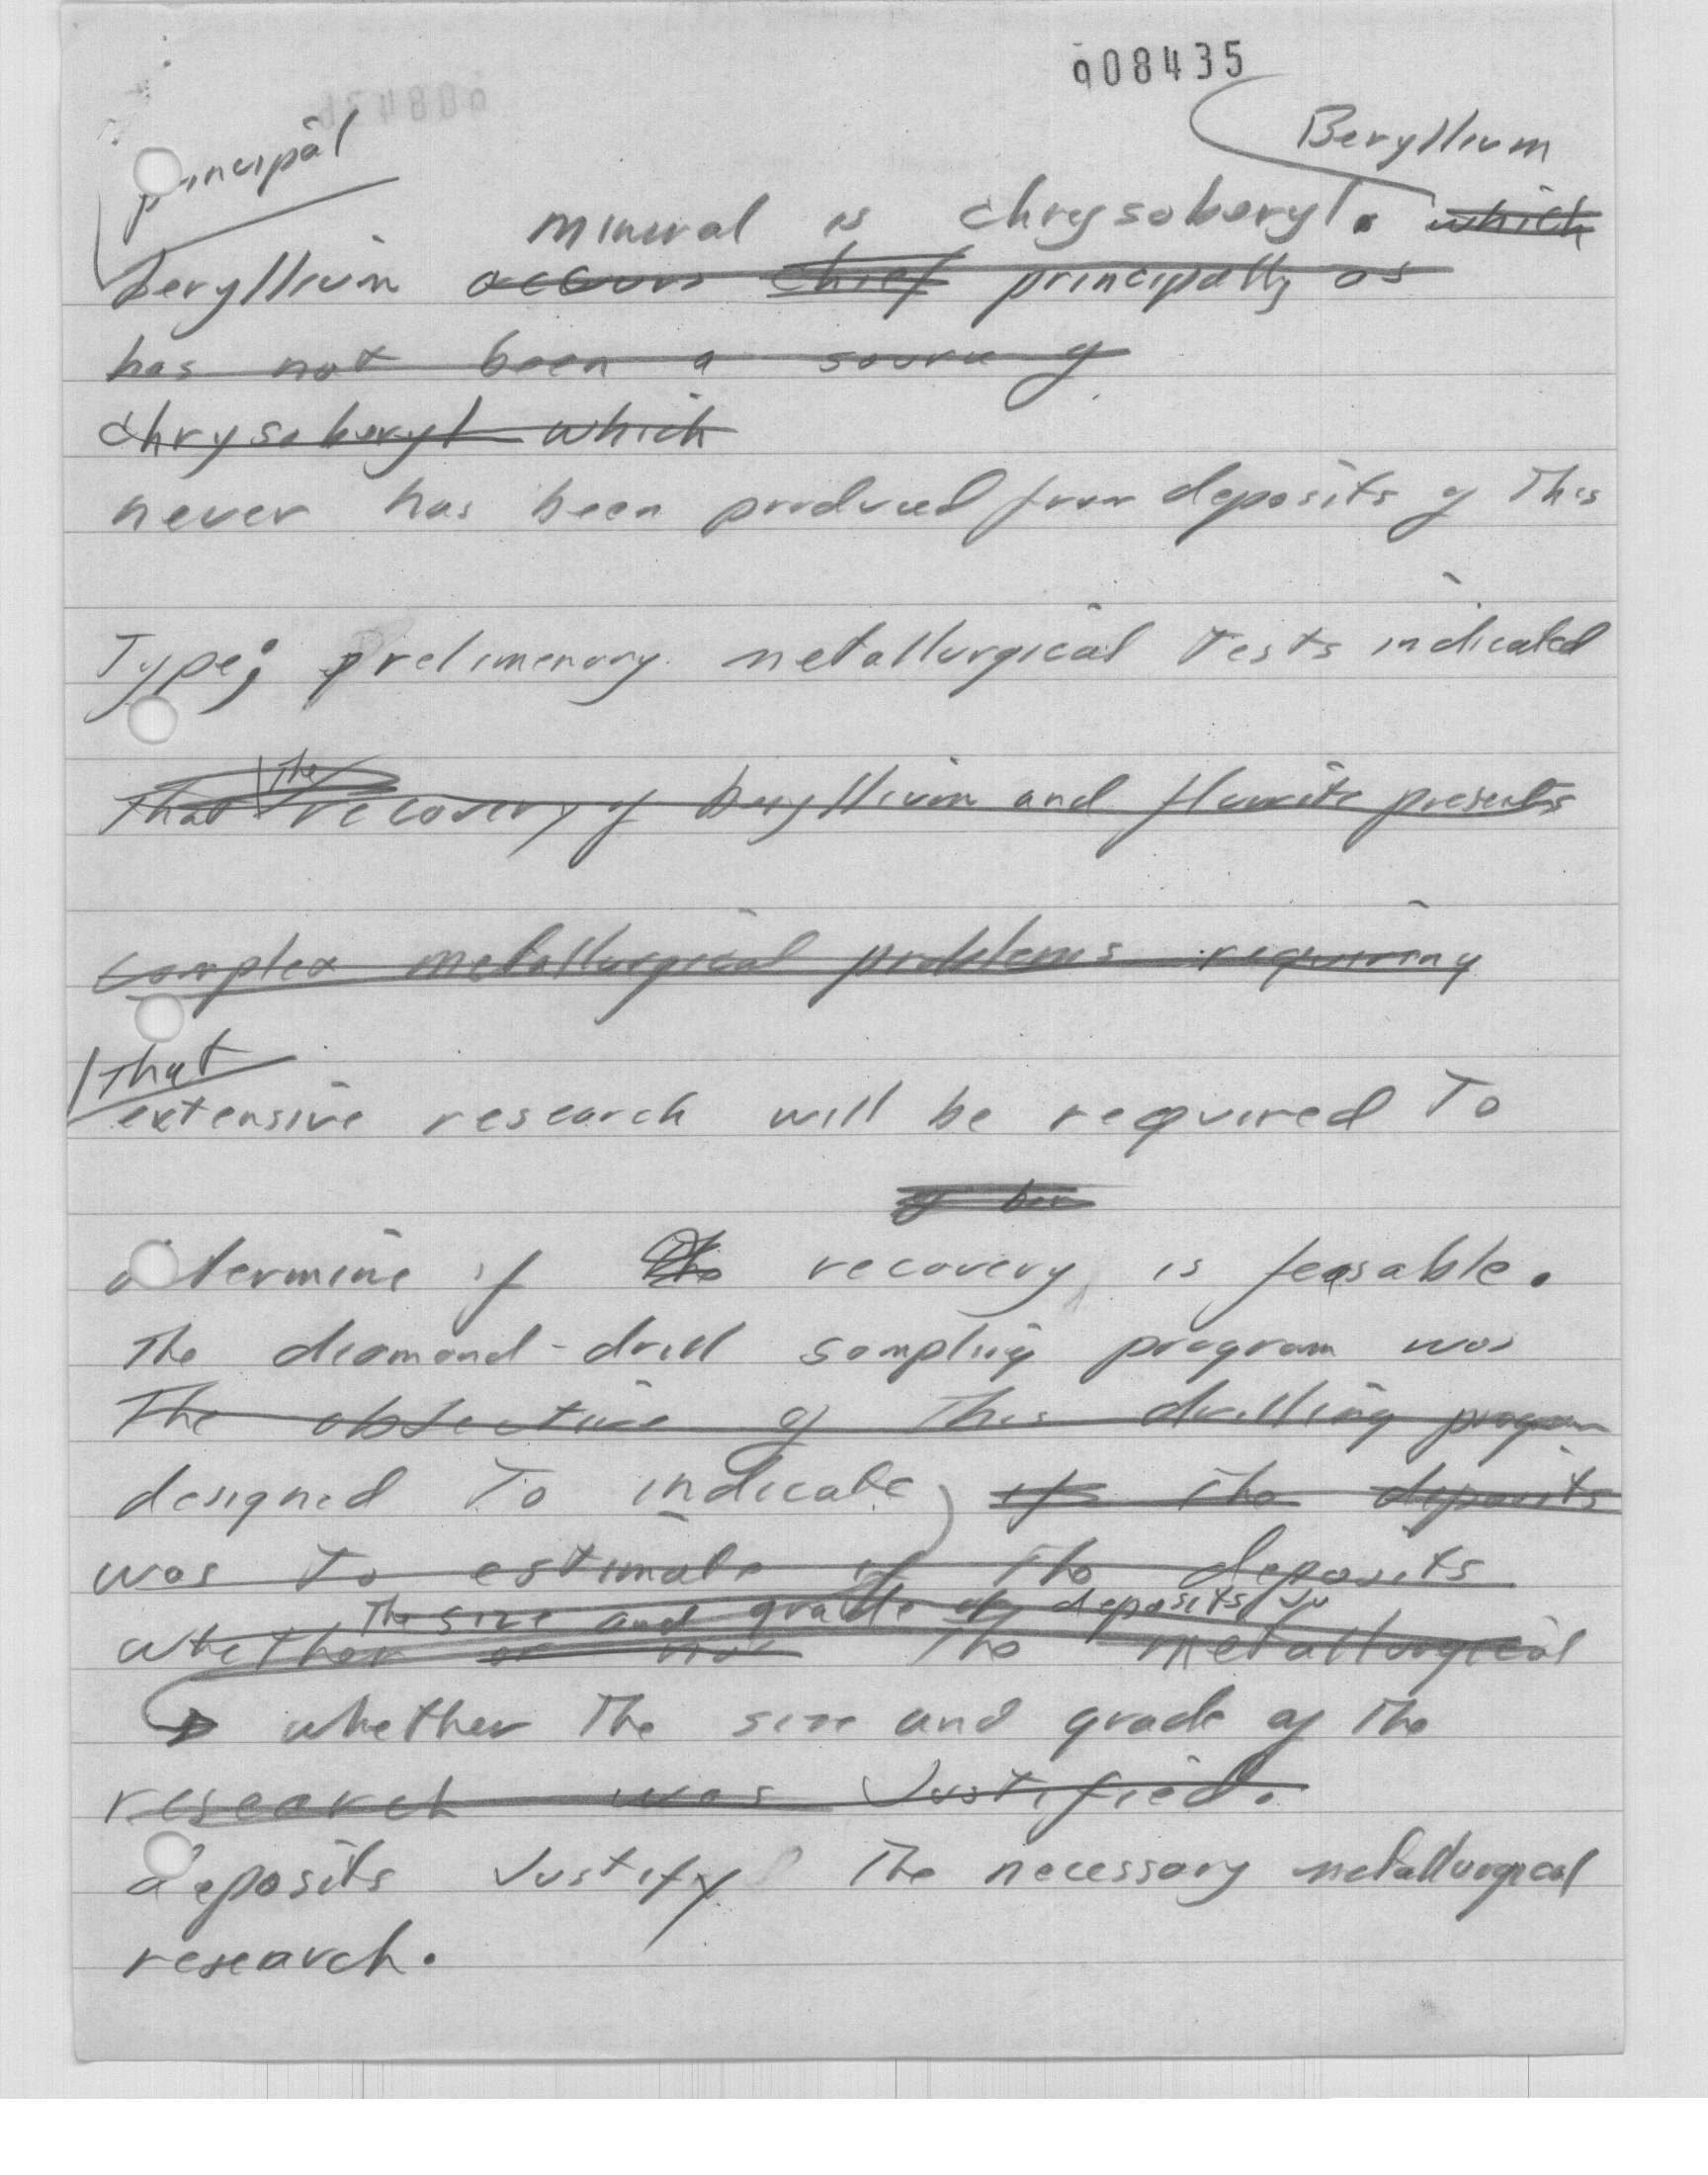 908435
Beryllium
principal
mineral is chrysoberyl. which
beryllium occurs chief principally as
has not been a source of
chrysoberyl which
never has been produced from deposits of this
Type; prelimenary metallurgical Tests indicated
the
that recovery of beryllium and fluorite presents
complex metallurgical problems requiring
that
extensive research will be required To
of ber
determine if the recovery is feasable.
The diamond-drill sampling program was
The objective of this drilling program
designed To indicate if the deposits
was To estimate if the deposits
The size and grade of deposits Ju
whether or not the metallurgical
whether The size and grade of The
research was Justified.
deposits Justify The necessary metallurgical
research.